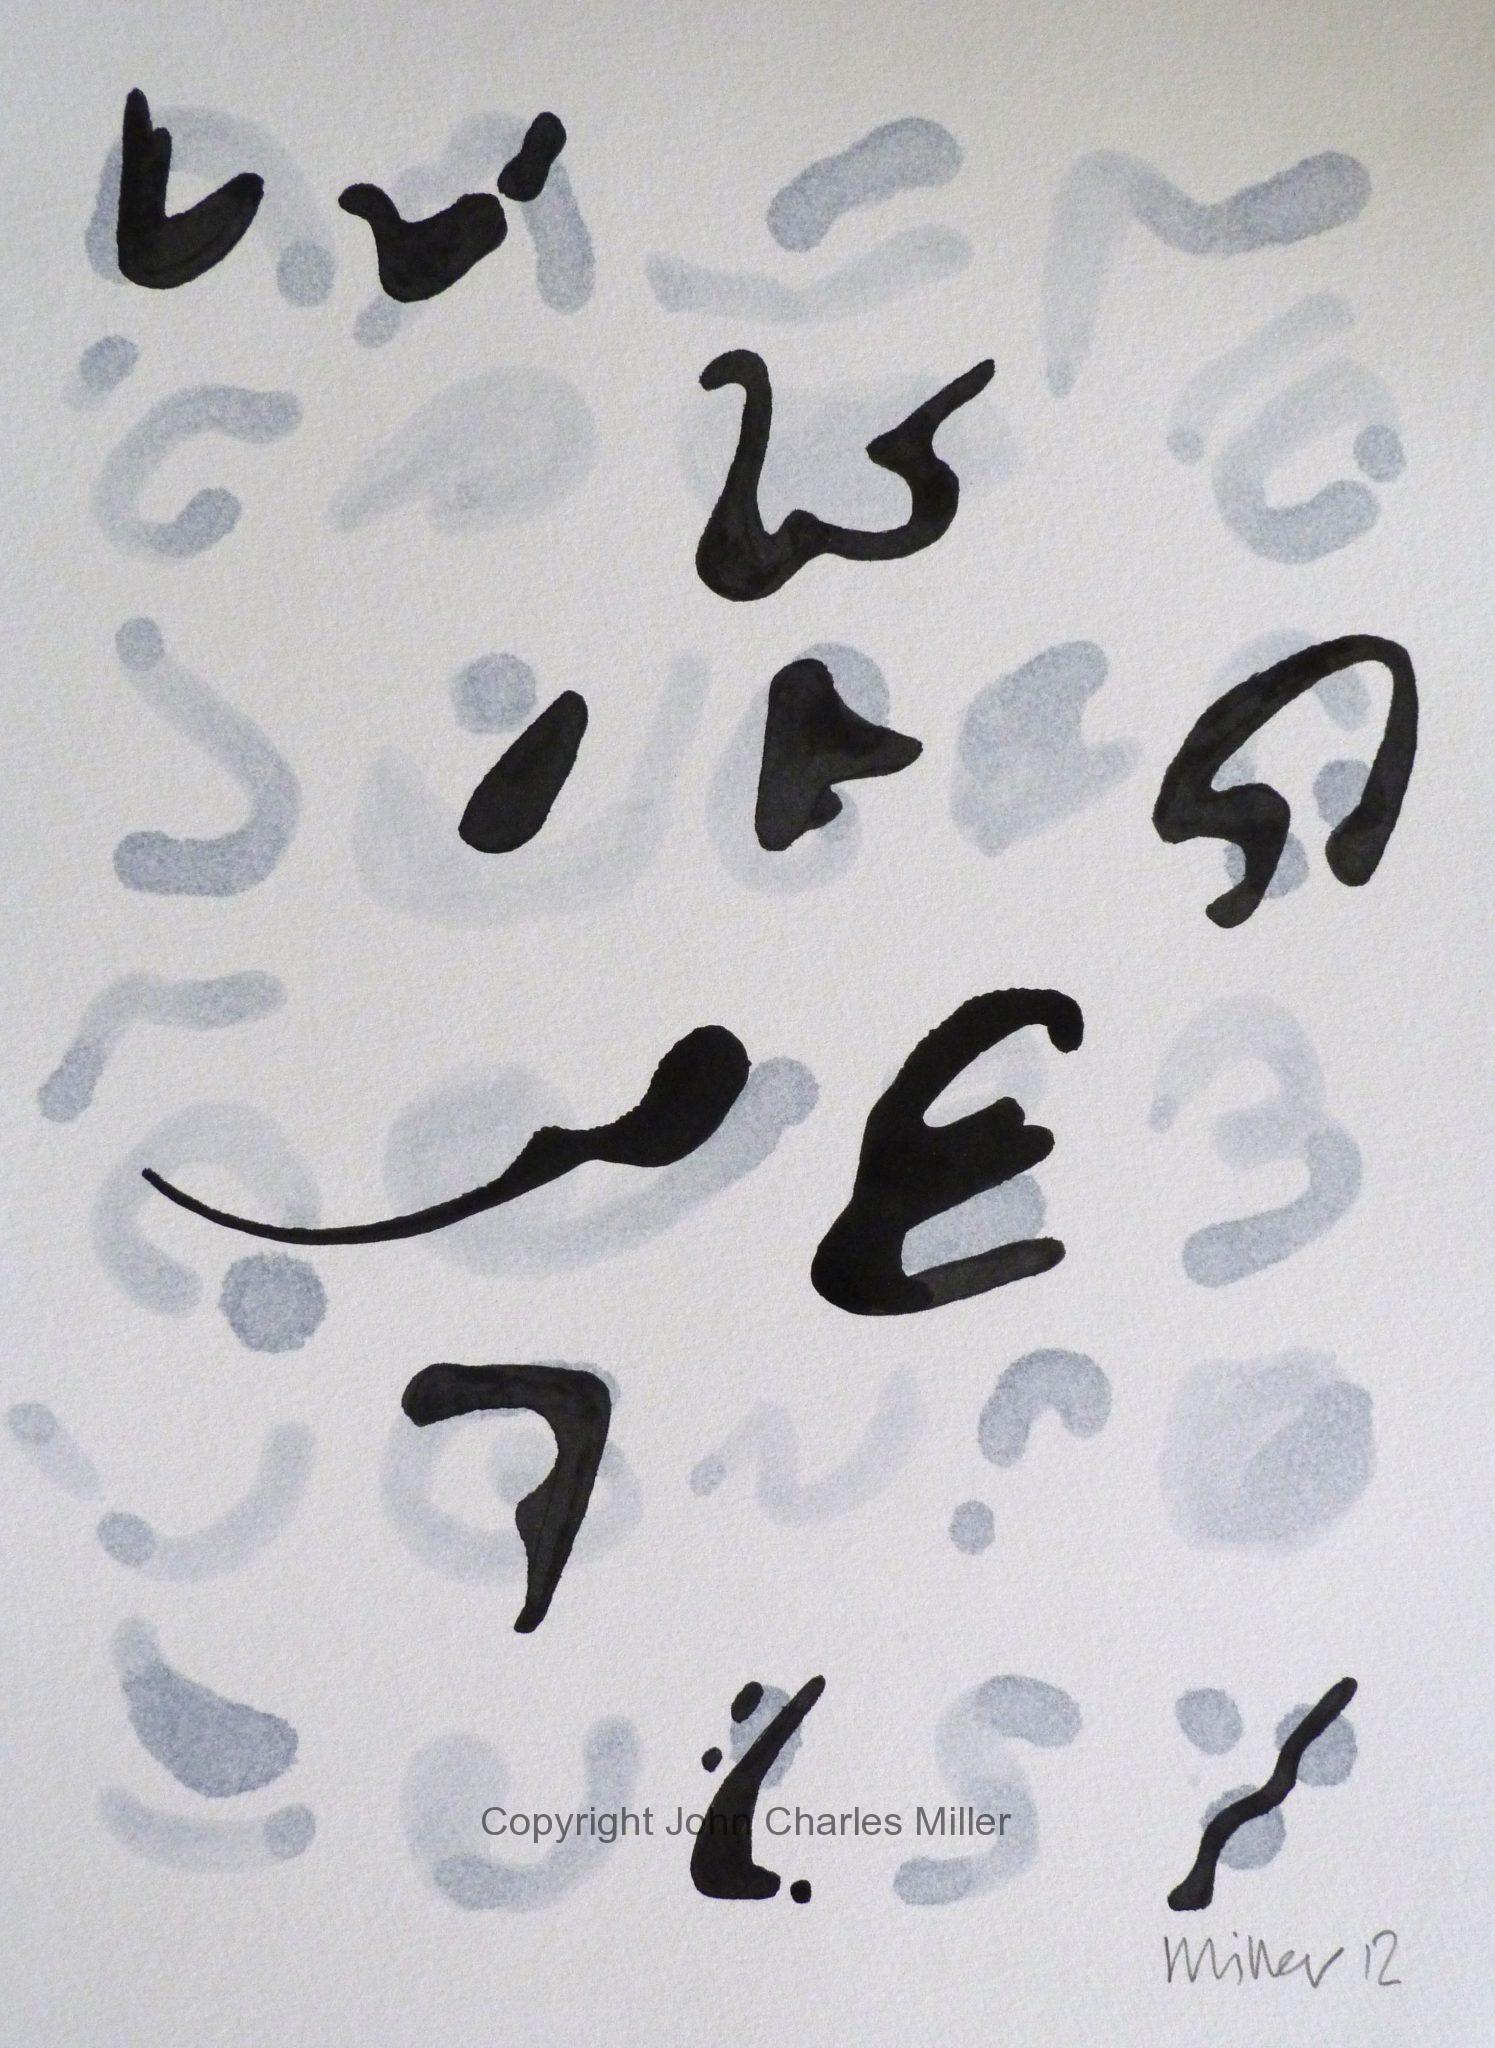 Copyright John Charles Miller
Miller 12